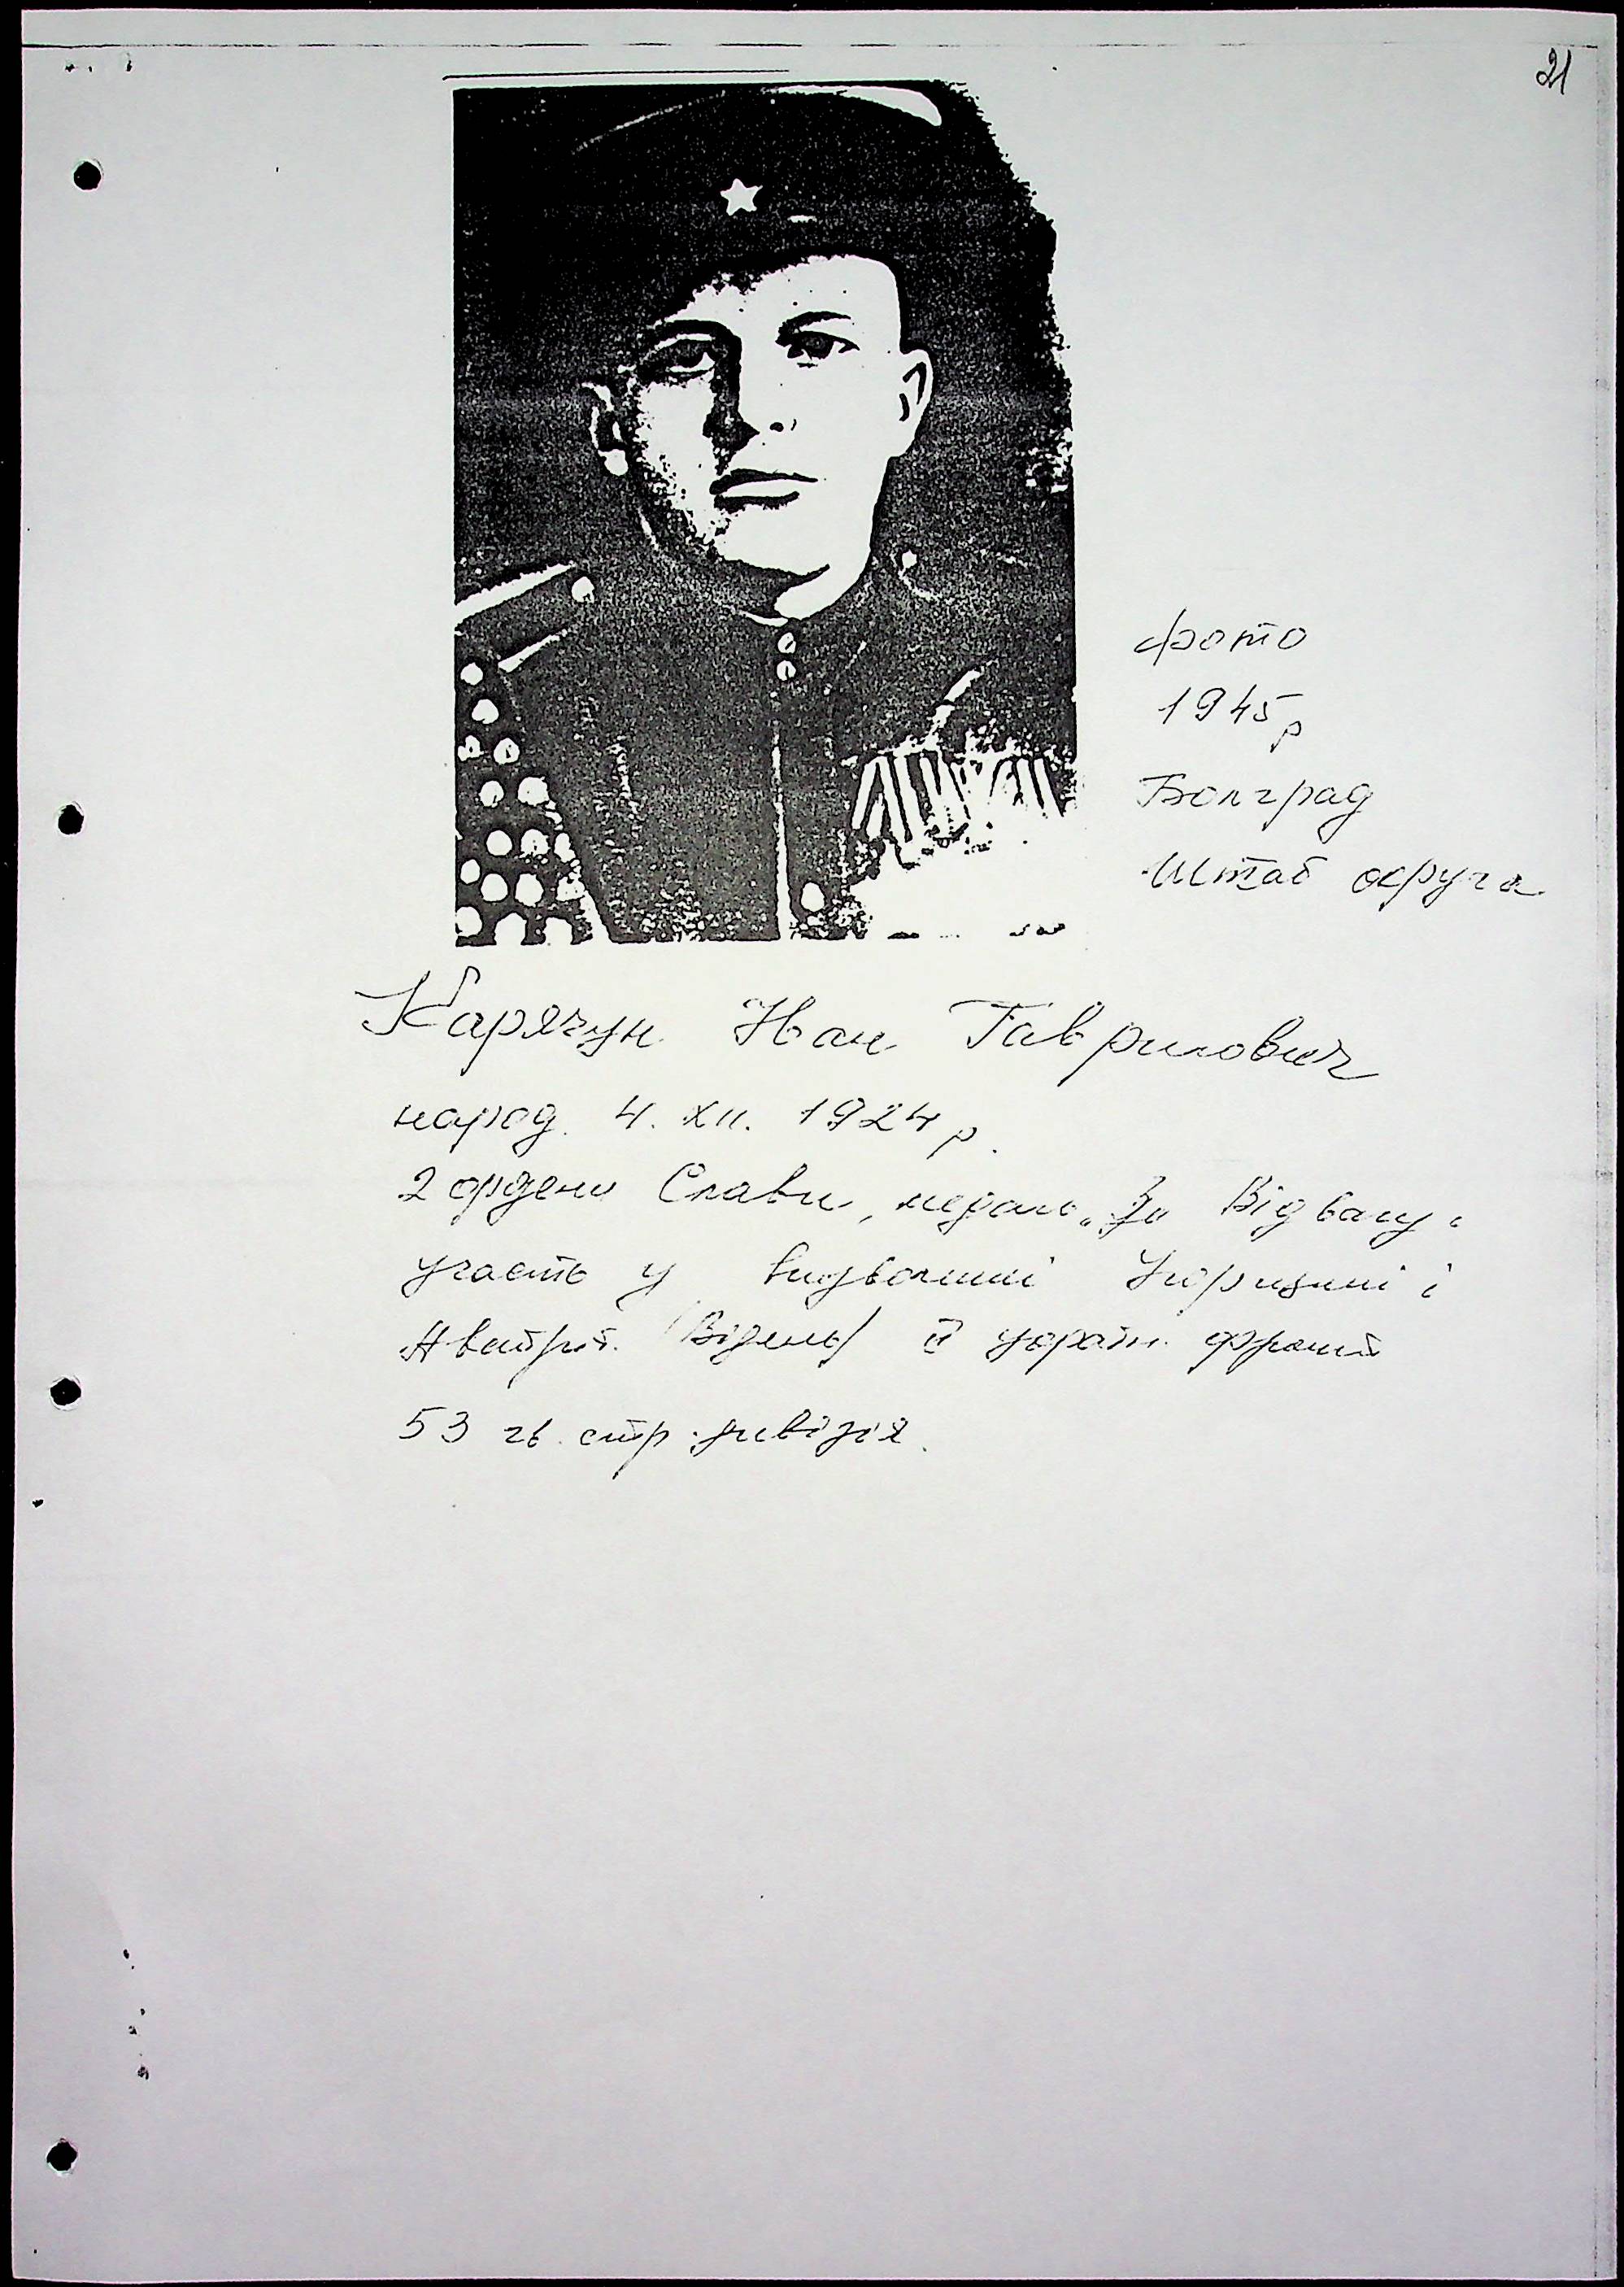 21
фото
1945р
Болград
Штаб округа
Карячун Іван Гаврилович
народ. 4. XII. 1924р.
2 ордени Слави, медаль „За Відвагу"
участь у визволенні Угорщини і
Австрії. (Відень) україн. фронт
53 гв. стр. дивізія.